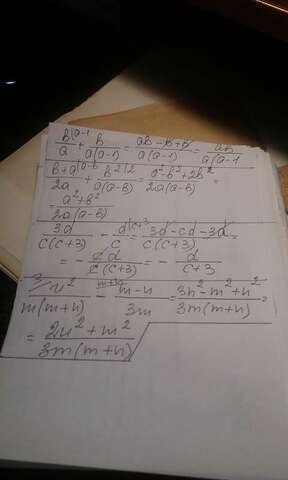 b|a-1/a + b/a(a-1) = ab-b+b/a(a-1) = ab/a(a-1
b+a|a-b/2a + b²|2/a(a-b) = a²-b²+2b²/2a(a-b) =
a²+b²/2a(a-b)
3d/c(c+3) - d|c+3/c = 3d-cd-3d/c(c+3) =
= - cd/c(c+3) = - d/c+3
³n²/m(m+n) - m-n|m+n/3m = 3n²-m²+n²/3m(m+n) =
= 2n²+m²/3m(m+n)